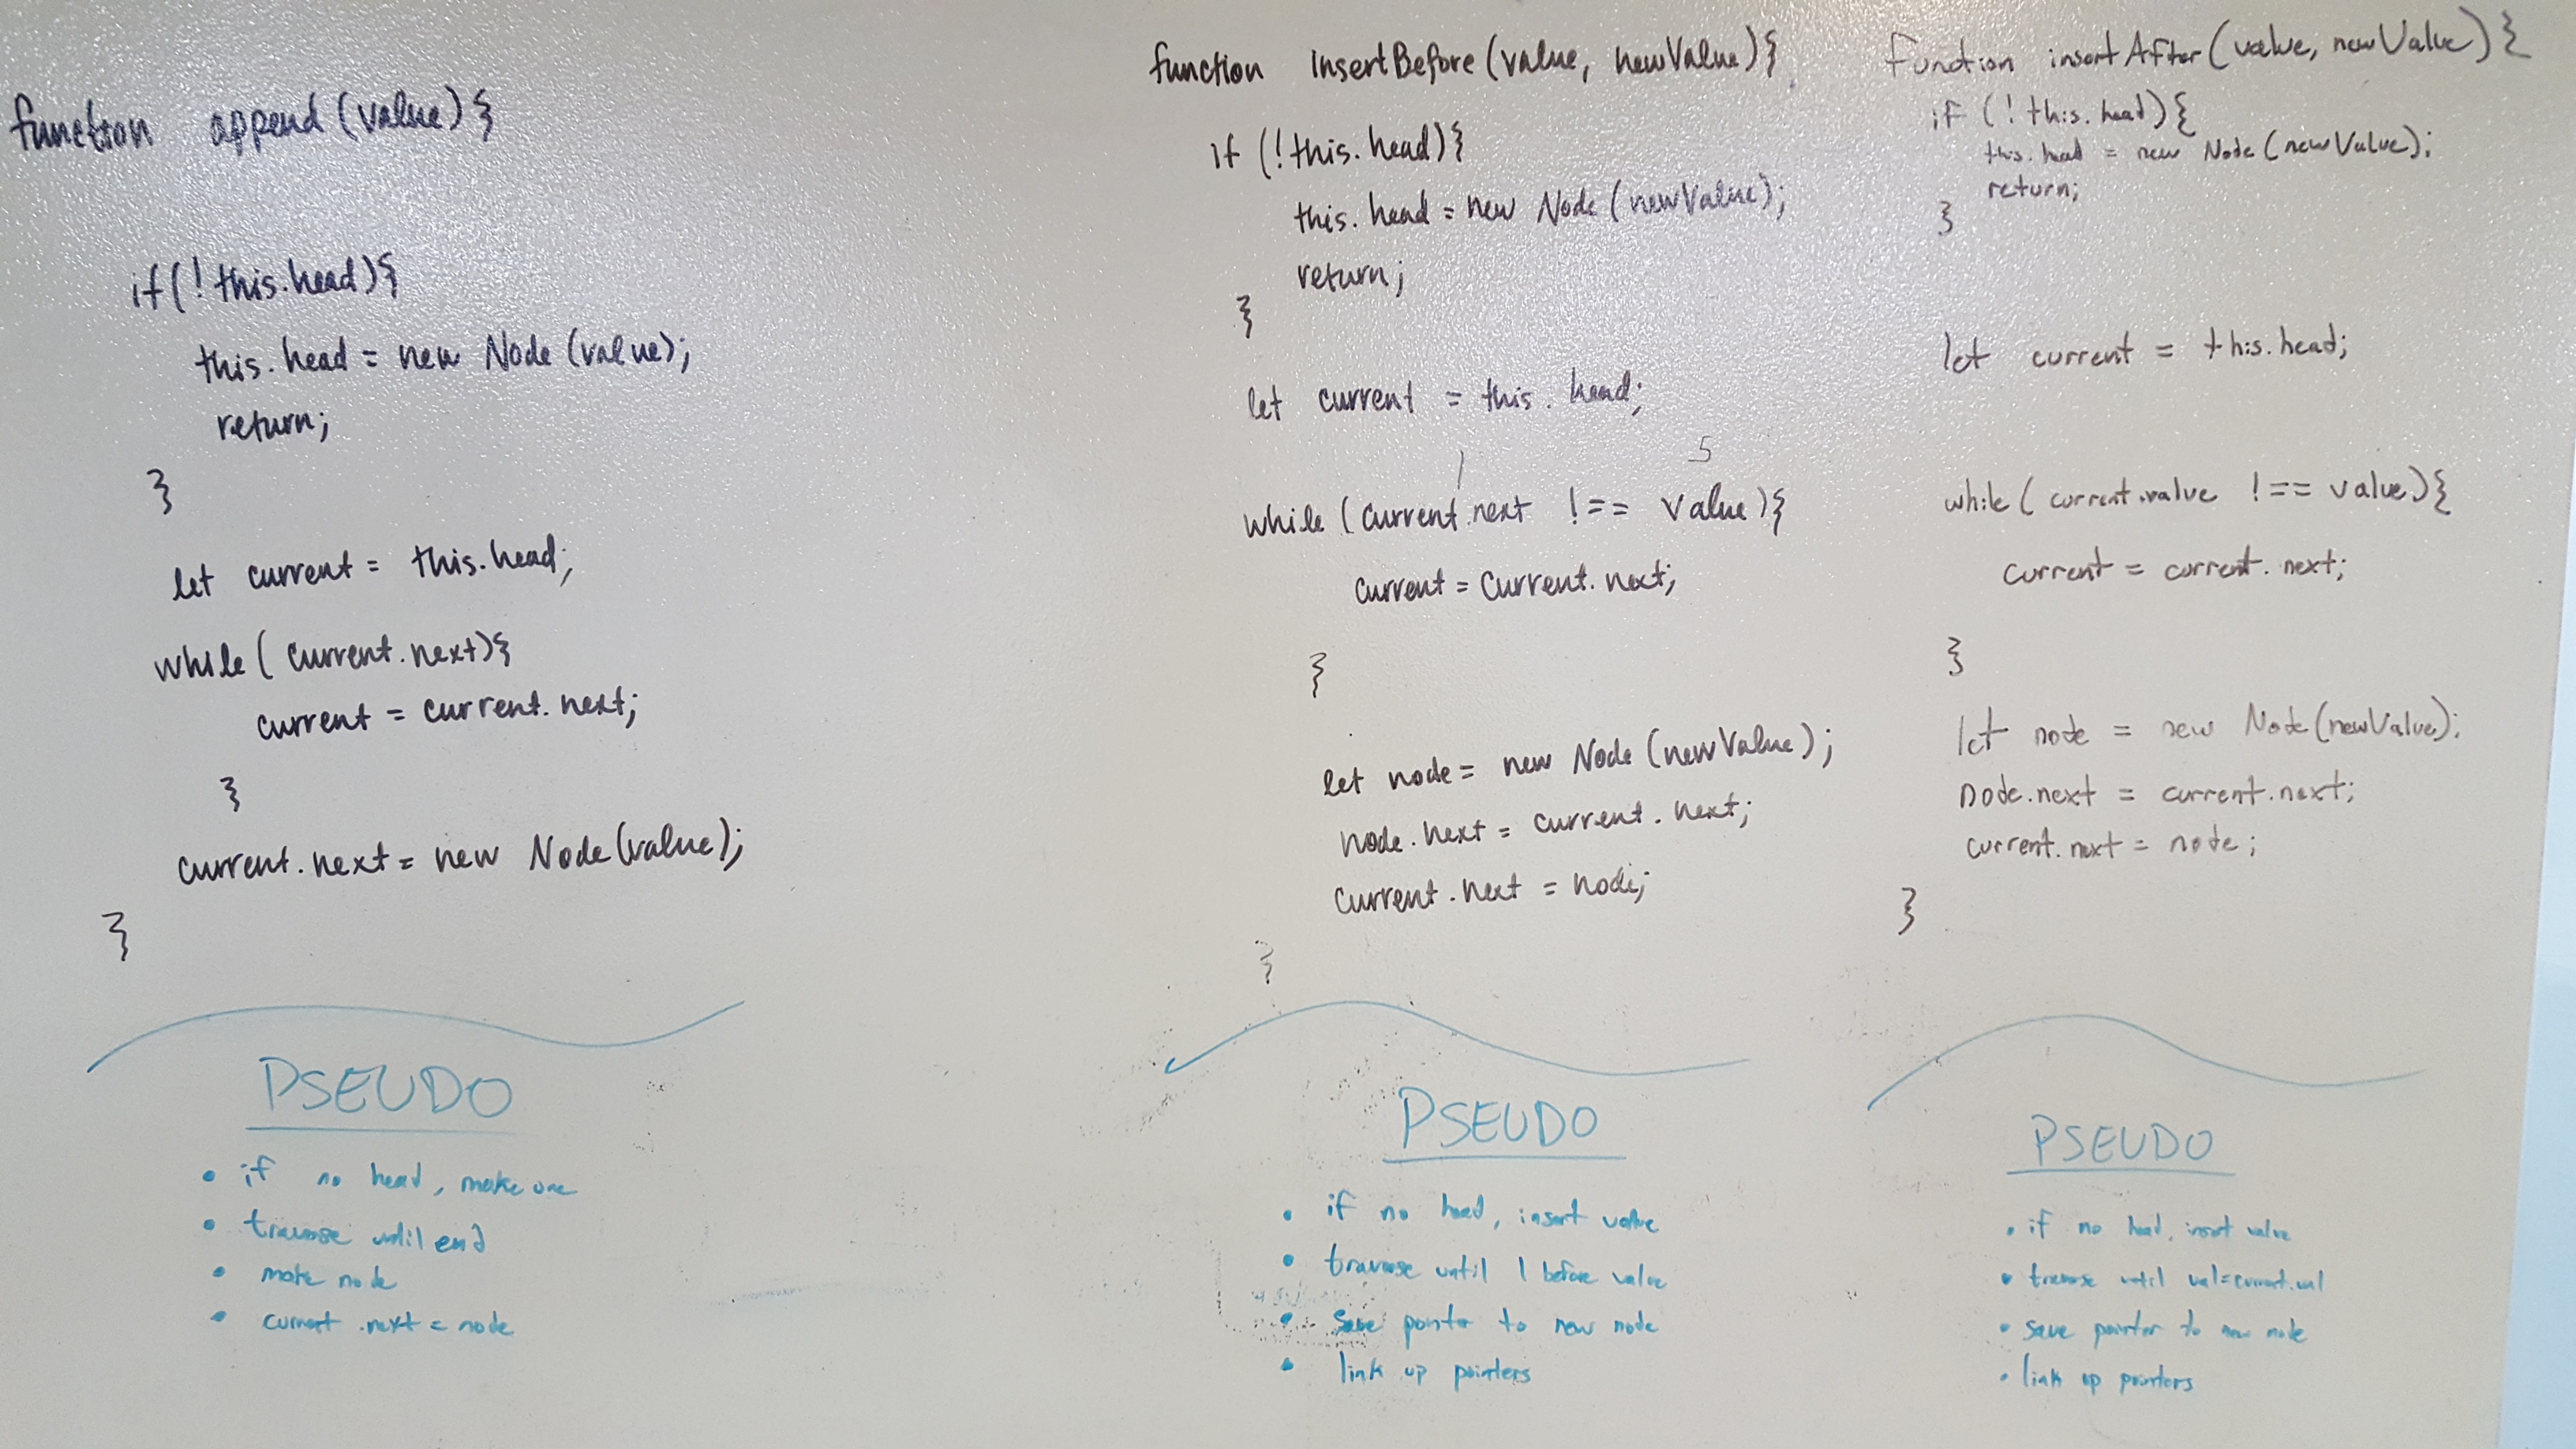 function append(value){
if(!this.head){
this.head = new Node(value);
return;
}
let current = this.head;
while(current.next){
current = current.next;
}
current.next = new Node(value);
}
PSEUDO
• if no head, make one
• traverse until end
• make node
• current.next = node
function insertBefore(value, newValue){
if (!this.head){
this.head = new Node(newValue);
return;
}
let current = this.head;
5
while (current.next !== value){
current = current.next;
}
let node = new Node(newValue);
node.next = current.next;
current.next = node;
}
PSEUDO
• if no head, insert value
• traverse until 1 before value
• save pointer to new node
• link up pointers
function insertAfter(value, newValue){
if (!this.head){
this.head = new Node(newValue);
return;
}
let current = this.head;
while(current.value !== value){
current = current.next;
}
let node = new Node(newValue);
node.next = current.next;
current.next = node;
}
PSEUDO
• if no head, insert value
• traverse until val=current.val
• save pointer to new node
• link up pointers